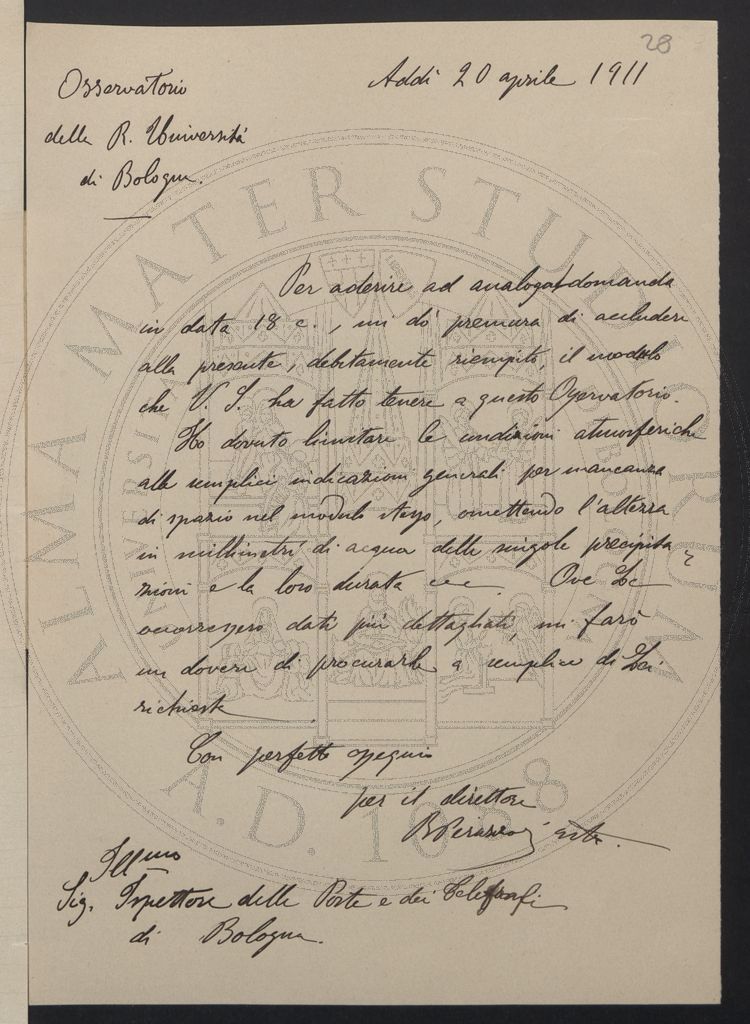 28
Addì 20 aprile 1911
Osservatorio
della R. Università
di Bologna.
Per aderire ad analoga domanda
in data 18 c., mi dò premura di accludere
alla presente, debitamente riempito, il modulo
che V. S. ha fatto tenere a questo Osservatorio.
Ho dovuto limitare le condizioni atmosferiche
alle semplici indicazioni generali per mancanza
di spazio nel modulo stesso, omettendo l'altezza
in millimetri di acqua delle singole precipita
zioni e la loro durata ecc. Ove Le
occorressero dati più dettagliati, mi farò
un dovere di procurarle a semplice di Lei
richiesta.
Con perfetto ossequio
per il direttore
Illmo
Sig. Ispettore delle Poste e dei Telegrafi
di Bologna.
ALMA MATER STUDIORUM
A.D. 1088